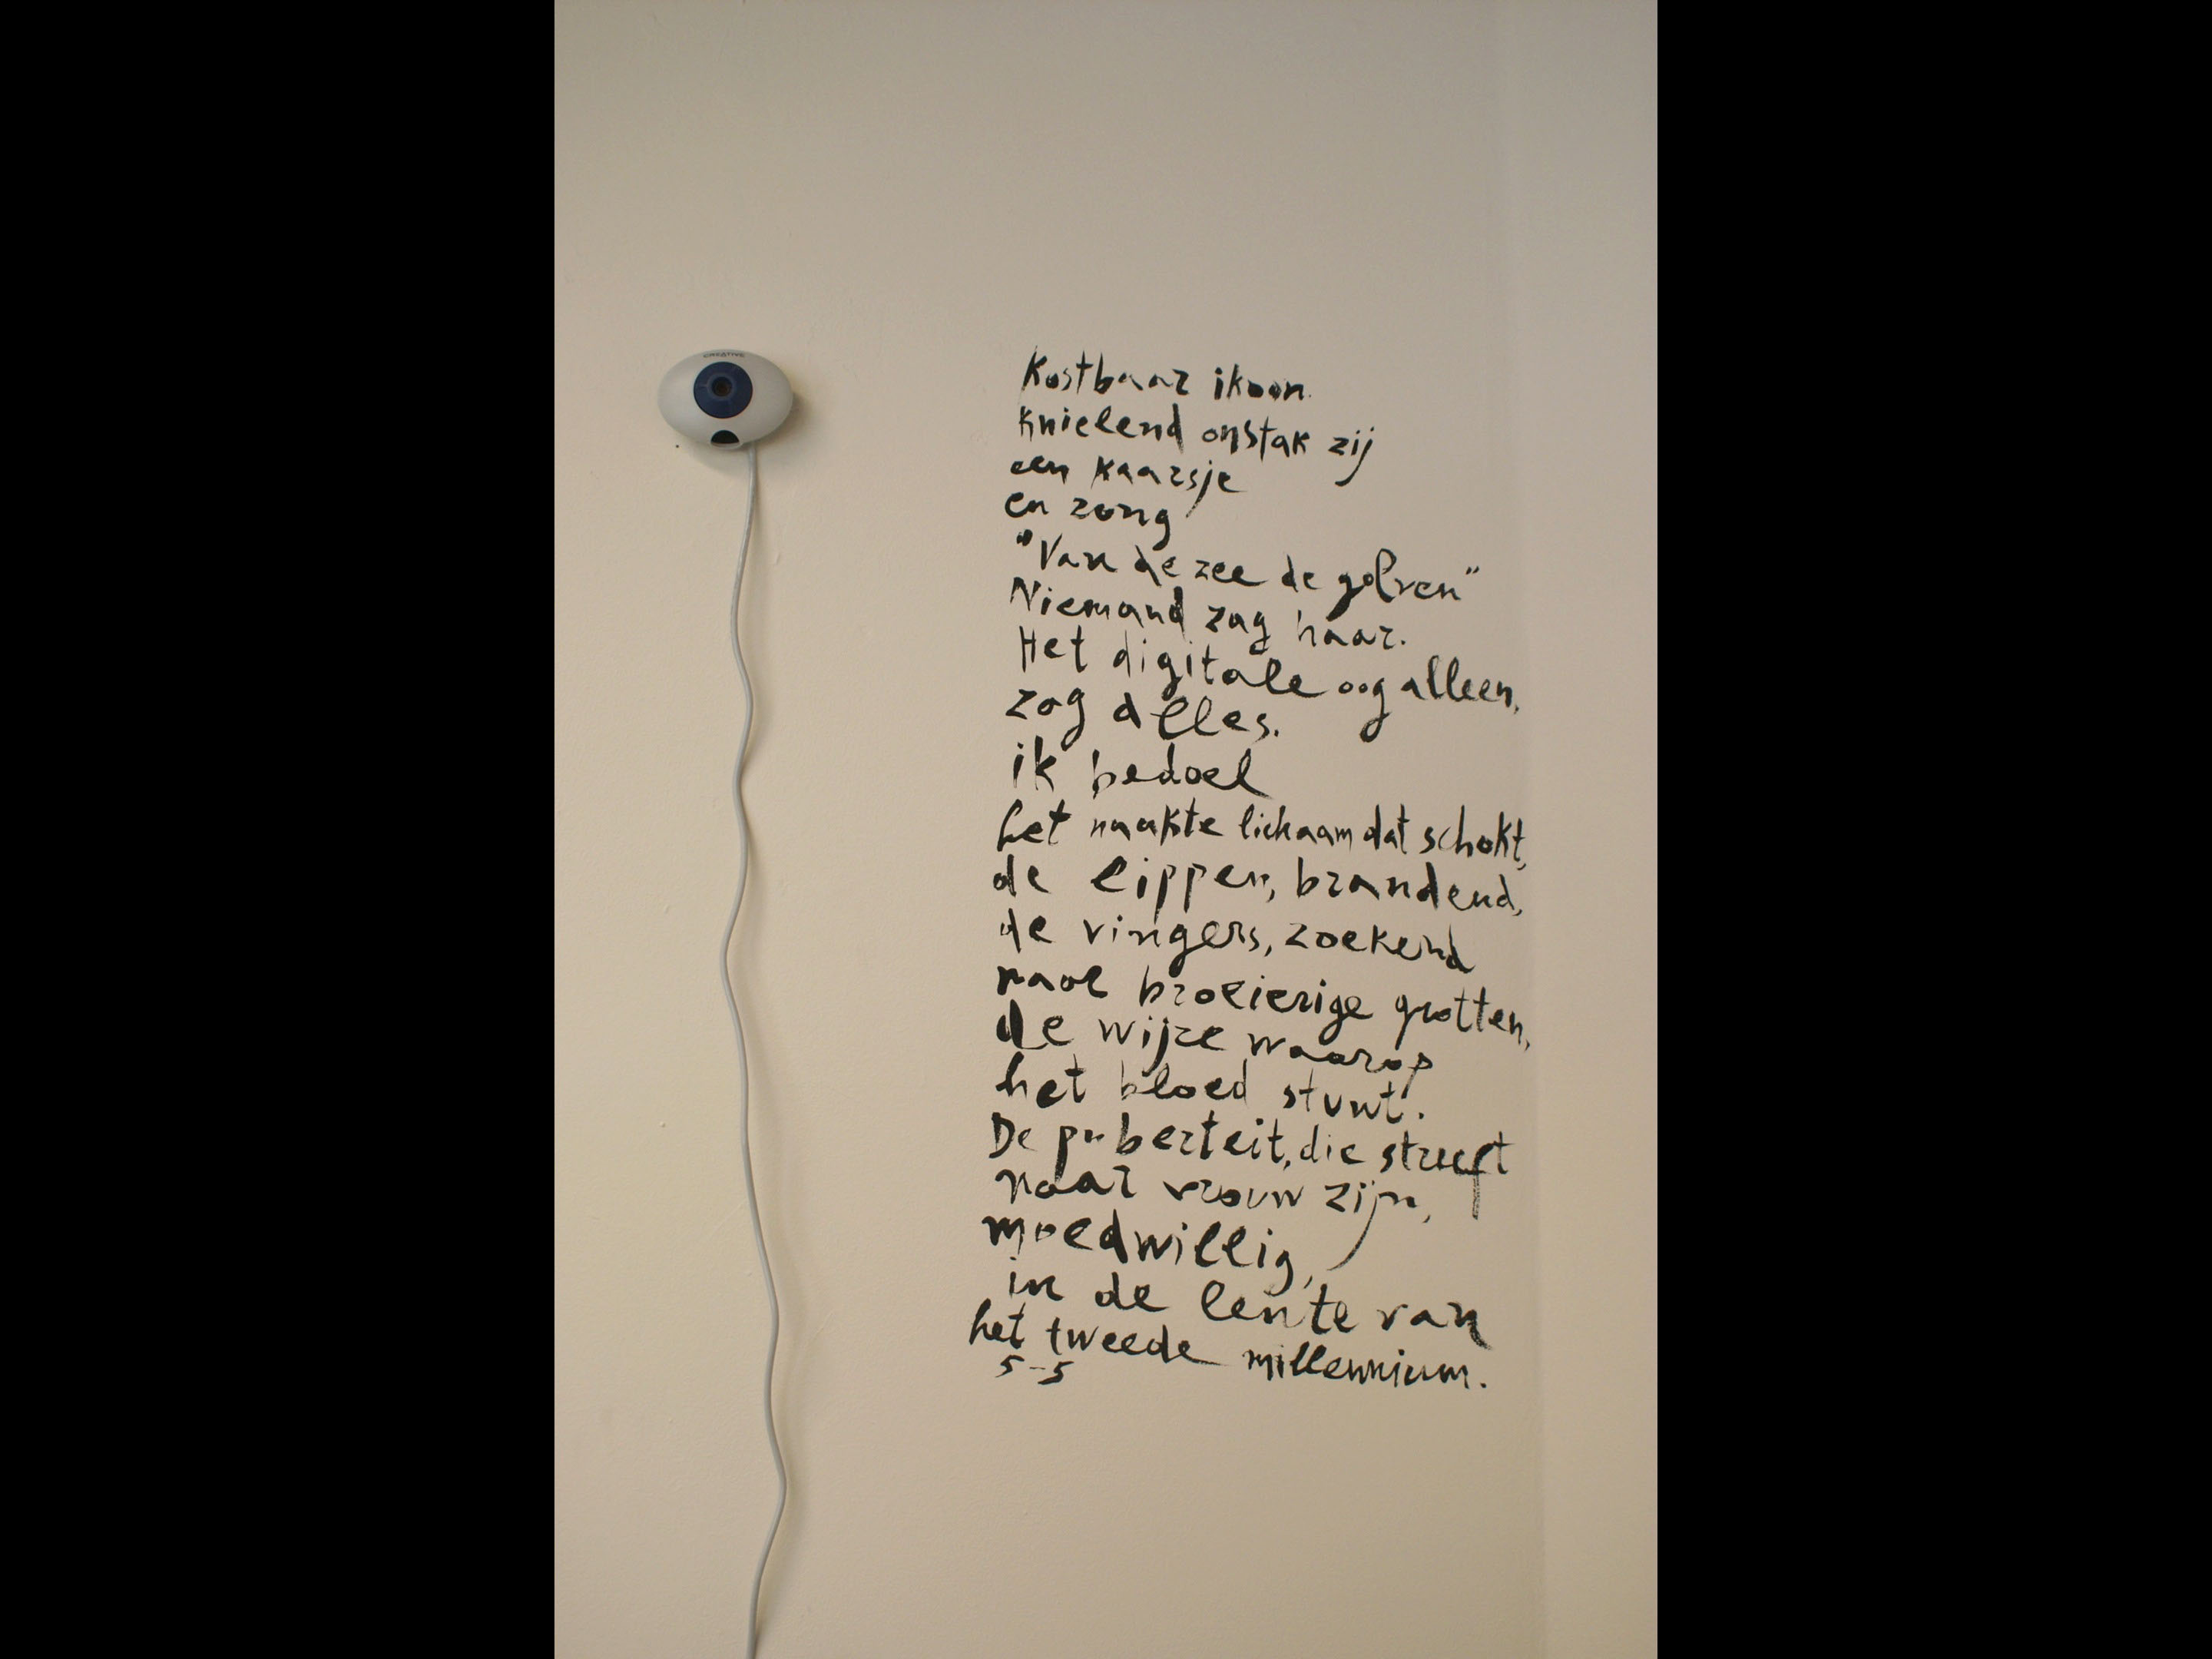 CREATIVE
Kostbaar ikoon.
Knielend onstak zij
een kaarsje
en zong
"Van de zee de golven"
Niemand zag haar.
Het digitale oog alleen,
zag alles.
ik bedoel
het naakte lichaam dat schokt,
de lippen, brandend,
de vingers, zoekend
naar broeierige grotten,
de wijze waarop
het bloed stuwt.
De puberteit, die streeft
naar vrouw zijn,
moedwillig,
in de lente van
het tweede millennium.
5-5